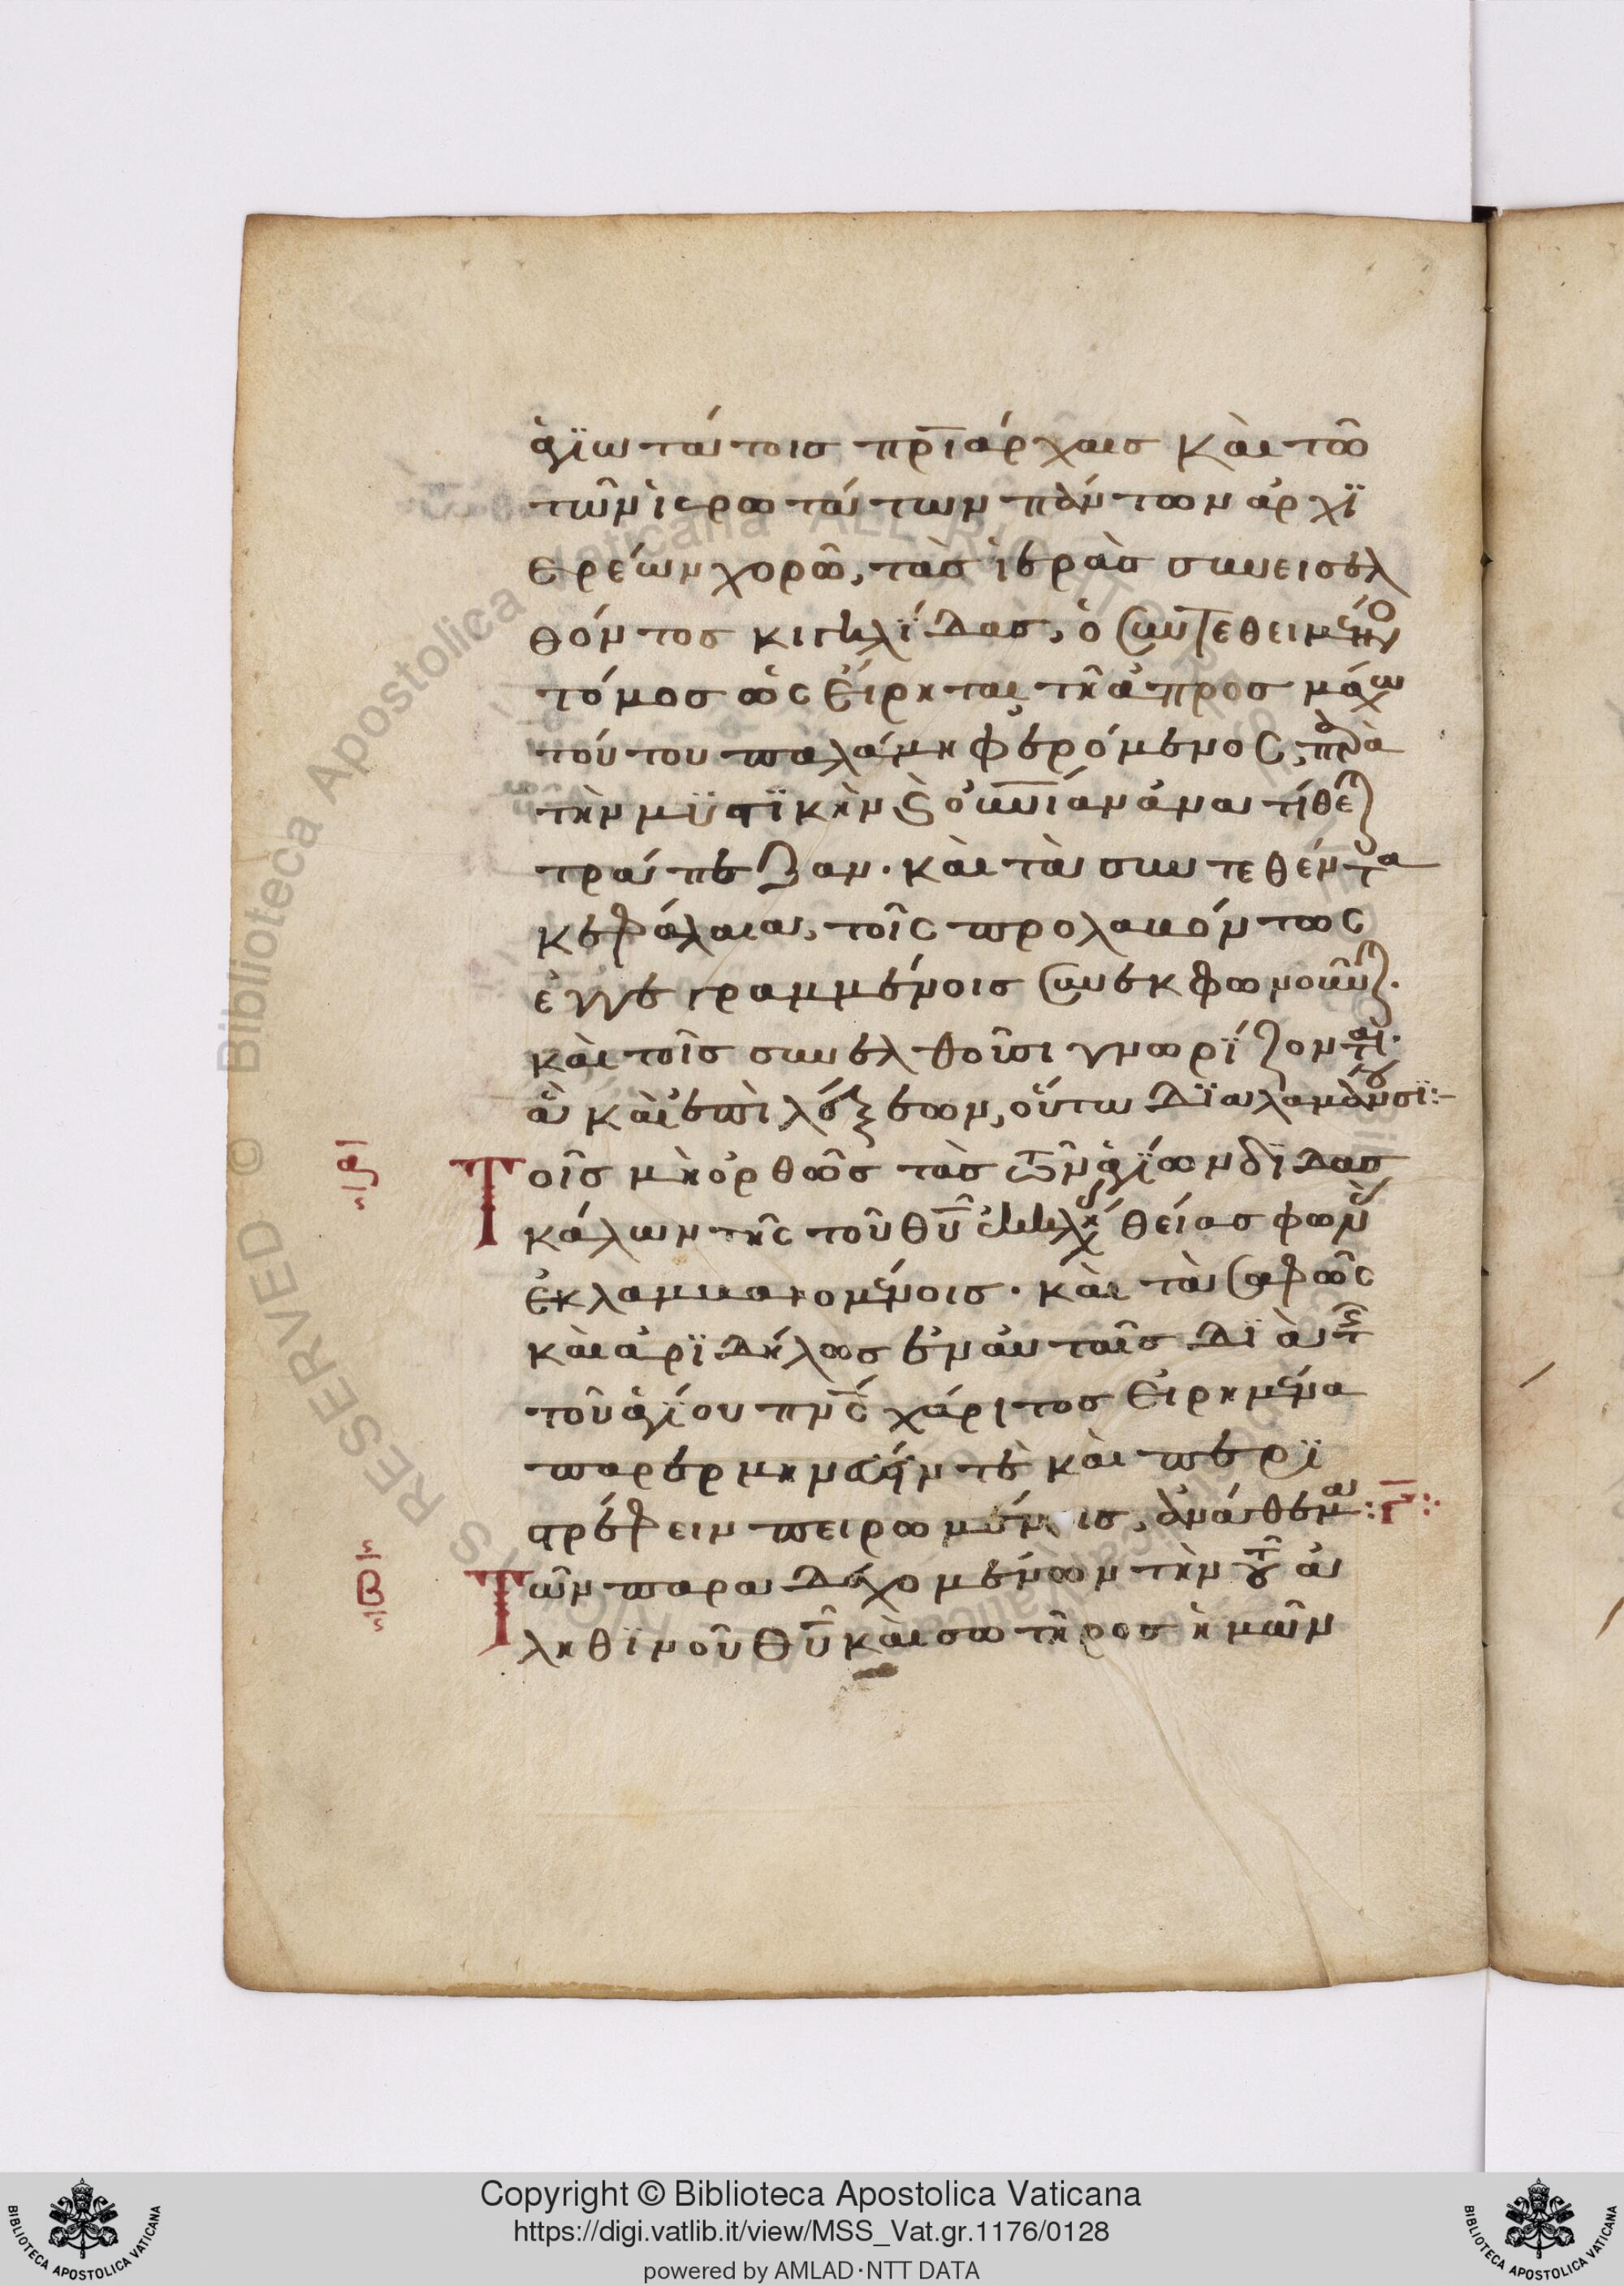 ἁγϊωτάτοισ πρϊάρχαισ καὶ τῶ
τῶν ἱερωτάτων πάντων ἀρχϊ
ερέων χορῶ, τὰσ ἱερὰσ συνεισελ
θόντοσ κιγκλίδασ, ὁ συντεθειμένος
τόμοσ ὡς εἴρηται, τῆ ἀπροσμάχω
τούτου παλάμη φερόμενος,
τὴν μϋστϊκὴν
τράπεζαν. καὶ τὰ συντεθέντα
κεφάλαια, τοῖς προλαβόντως
ἐγγεγραμμένοισ συνεκφωνοῦνται.
καὶ τοῖσ συνελθοῦσι γνωρίζονται.
ἃ καὶ ἐπὶ λέξεων, οὕτω δϊαλαμβάνουσϊ:-
ᾱ
Τοῖσ μὴ ὀρθῶσ τὰσ τῶν ἁγίων δϊδασ
κάλων τῆς τοῦ θῦ ἐκκλησίας θείασ φωνὰς
ἐκλαμβανομένοισ. καὶ τὰ σαφῶς
καὶ ἀρϊδήλωσ ἐν αὐταῖσ δϊὰ τῆς
τοῦ ἁγίου πνς χάριτοσ εἰρημένα
παρερμηνεύειν τὲ καὶ περϊ
στρέφειν πειρωμένοισ, ἀνάθεμα: γ̄:
Β
Τῶν παραδεχομένων τὴν τοῦ ἀ
ληθϊνοῦ θῦ καὶ σωτῆροσ ἡμῶν
Copyright © Biblioteca Apostolica Vaticana
https://digi.vatlib.it/view/MSS_Vat.gr.1176/0128
powered by AMLAD·NTT DATA
BIBLIOTECA APOSTOLICA VATICANA
BIBLIOTECA APOSTOLICA VATICANA